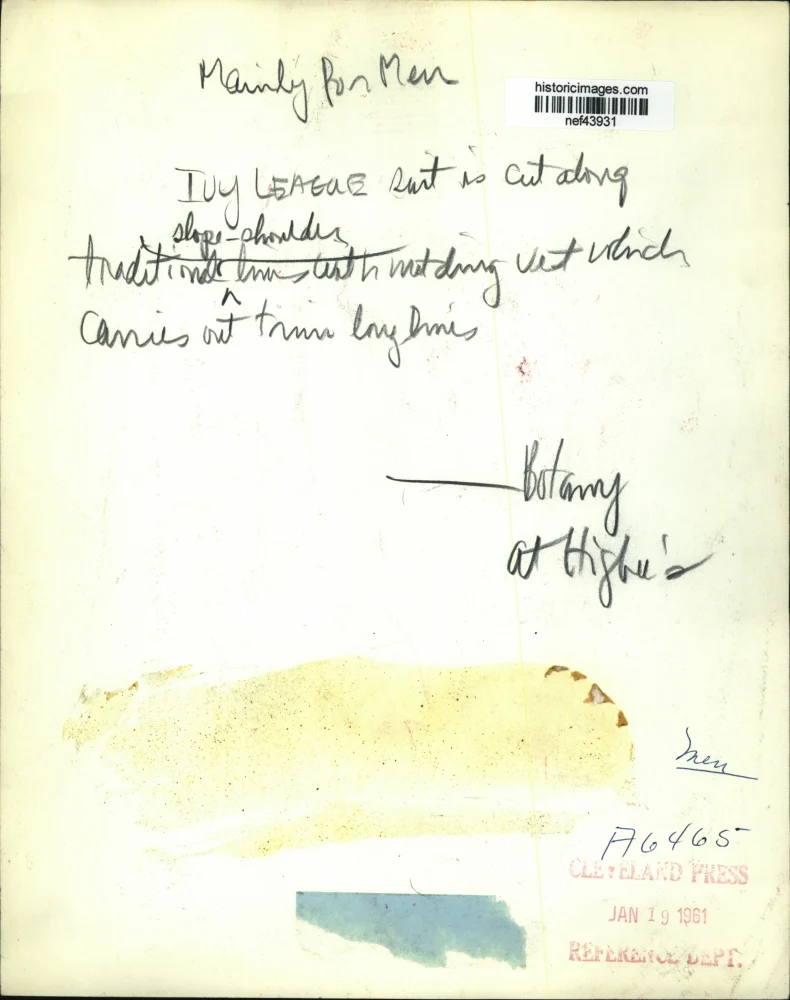 Mainly For Men
historicimages.com
nef43931
IVY LEAGUE suit is cut along
slope-shoulder
traditional lines with matching vest which
carries out trim long lines
Botany
at Higbee's
Men
A6465
CLEVELAND PRESS
JAN 19 1961
REFERENCE DEPT.